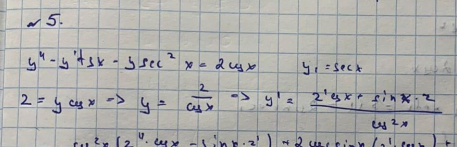 ~ 5.
y'' - y' tgx - y sec² x = 2 cos x y₁ = sec x
z = y cos x => y = z/cos x => y' = (z' cos x + sin x · z)/cos² x